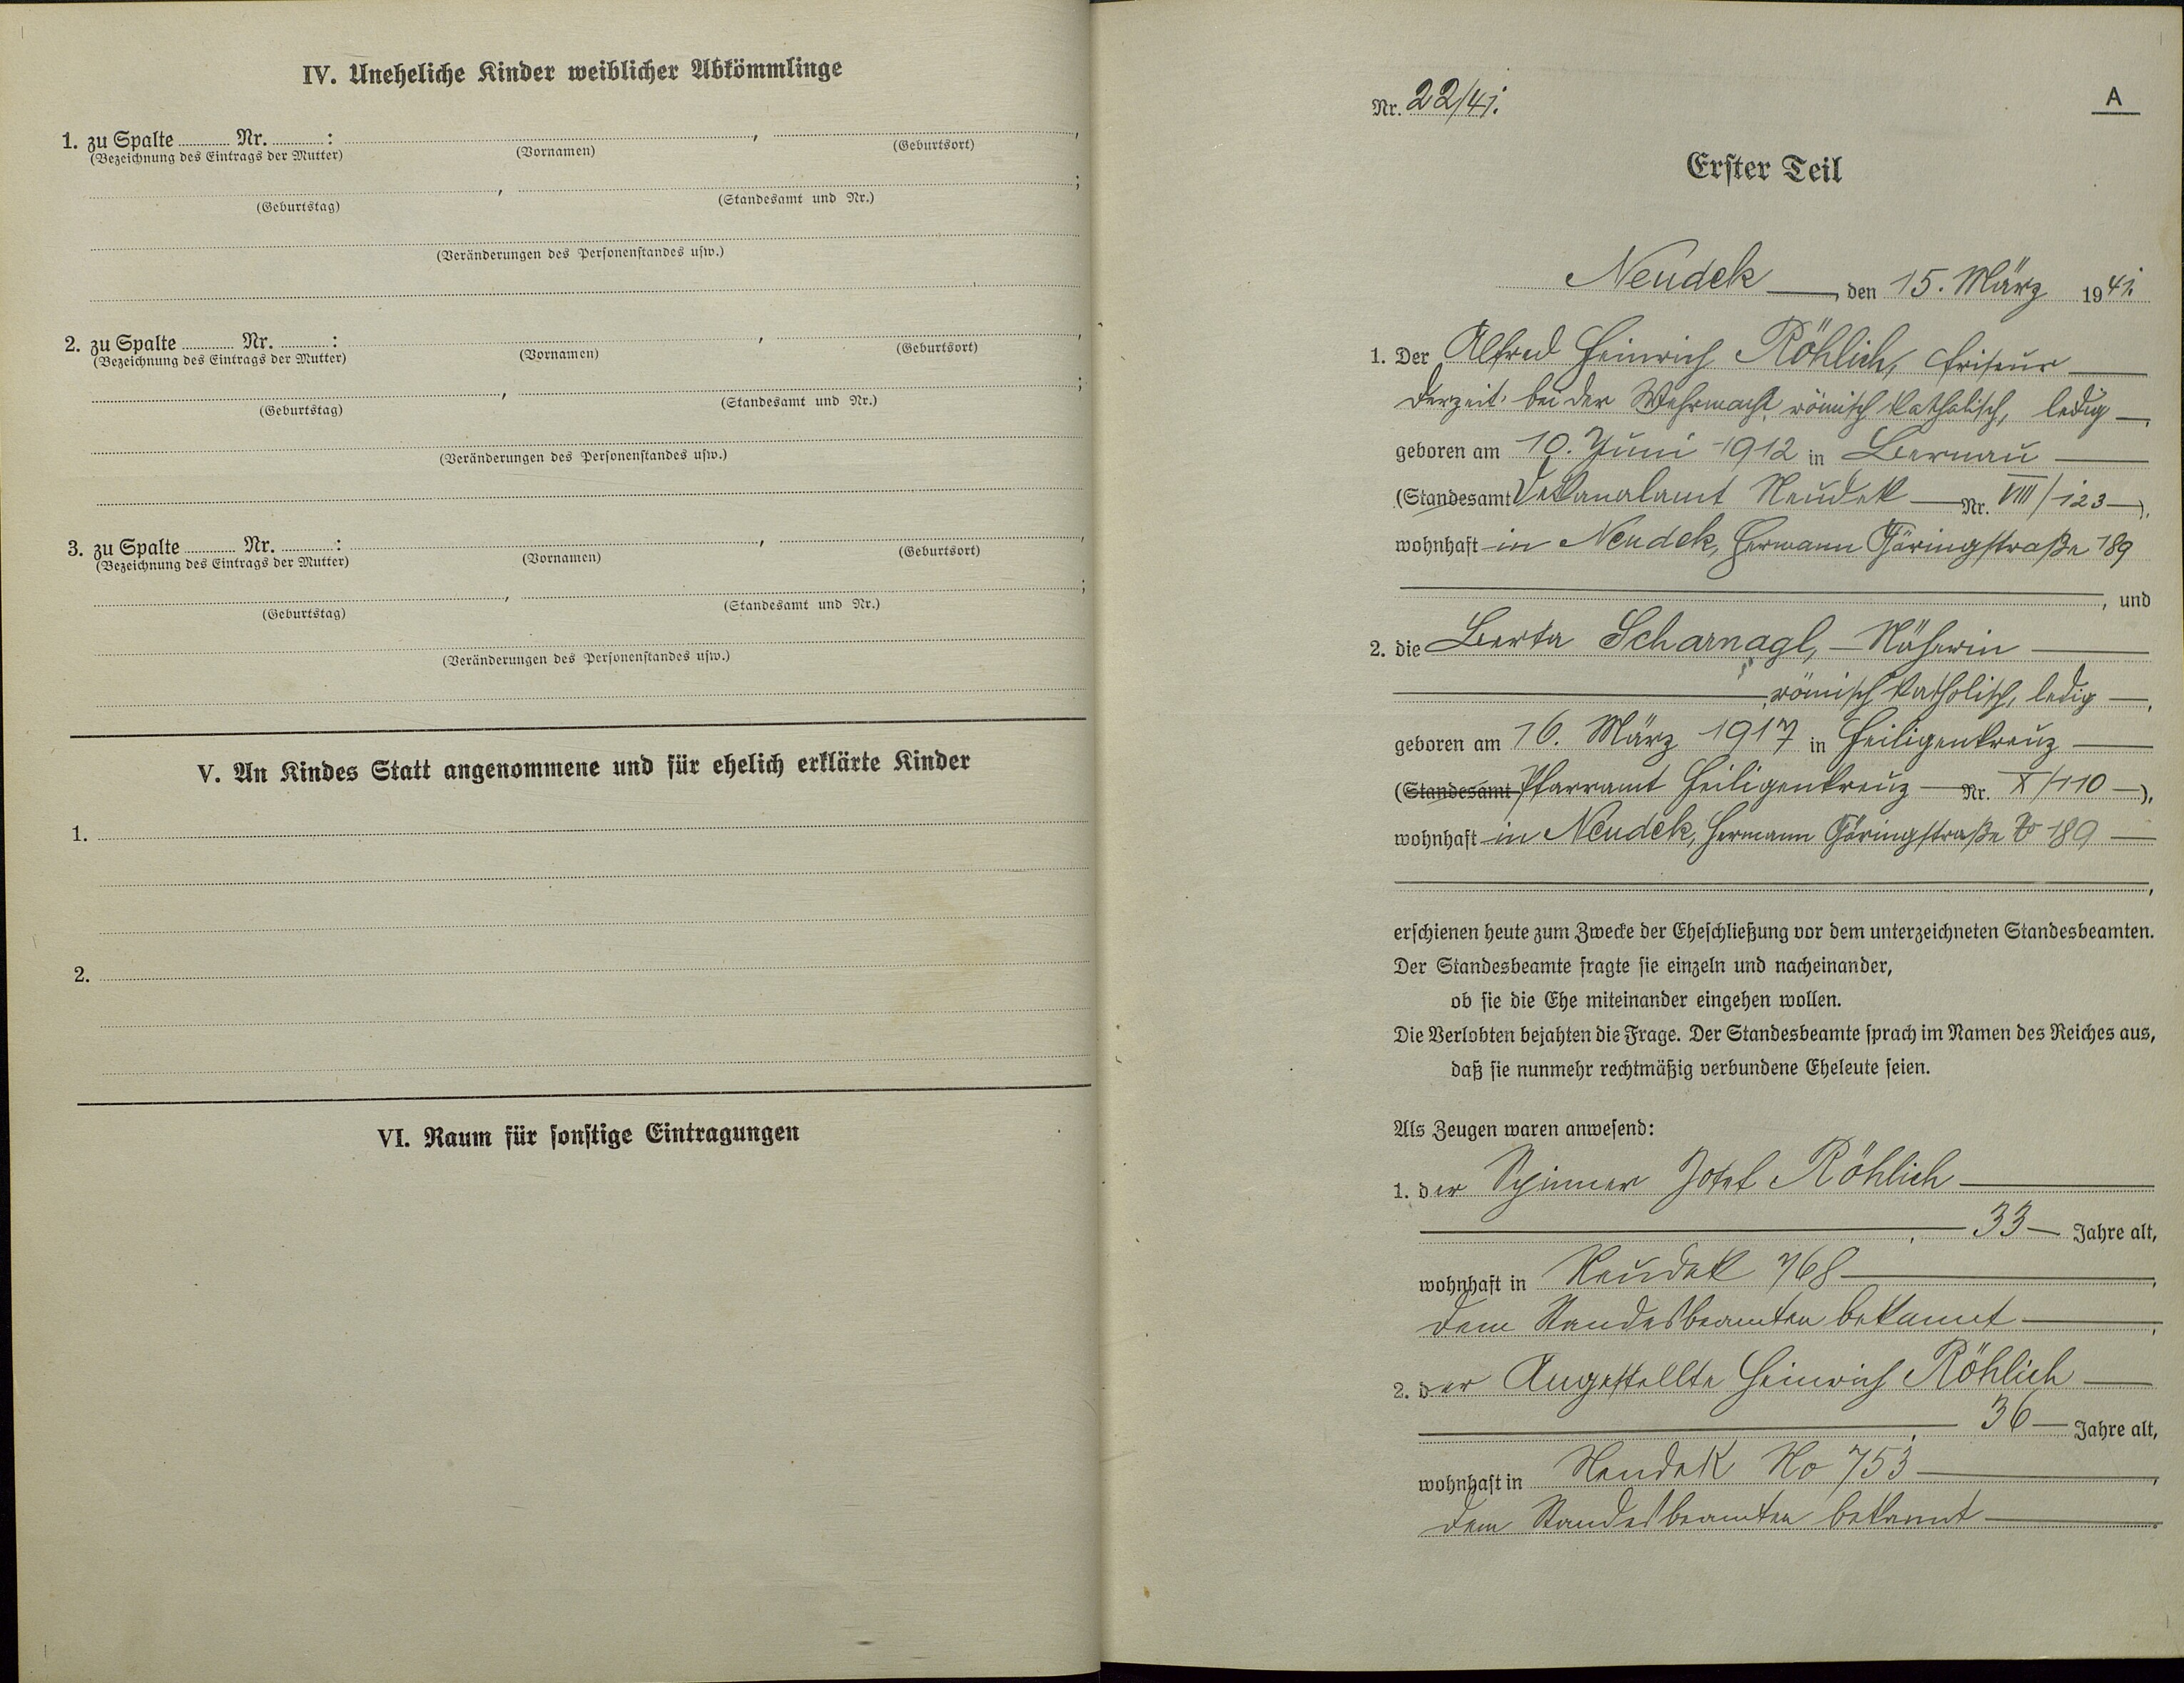 IV. Uneheliche Kinder weiblicher Abkömmlinge
1. zu Spalte Nr. : , ,
(Bezeichnung des Eintrags der Mutter) (Vornamen) (Geburtsort)
, ;
(Geburtstag) (Standesamt und Nr.)
(Veränderungen des Personenstandes usw.)
2. zu Spalte Nr. : , ,
(Bezeichnung des Eintrags der Mutter) (Vornamen) (Geburtsort)
, ;
(Geburtstag) (Standesamt und Nr.)
(Veränderungen des Personenstandes usw.)
3. zu Spalte Nr. : , ,
(Bezeichnung des Eintrags der Mutter) (Vornamen) (Geburtsort)
, ;
(Geburtstag) (Standesamt und Nr.)
(Veränderungen des Personenstandes usw.)
V. An Kindes Statt angenommene und für ehelich erklärte Kinder
1.
2.
VI. Raum für sonstige Eintragungen
Nr. 22/41.
A
Erster Teil
Neudek, den 15. März 1941
1. Der Alfred Heinrich Röhlich, Friseur
derzeit bei der Wehrmacht, römisch katholisch, ledig,
geboren am 10. Juni 1912 in Bernau
(Standesamt Dekanalamt Neudek Nr. VIII/123),
wohnhaft in Neudek, Hermann Göringstraße 189
, und
2. die Berta Scharnagl, Näherin
, römisch katholisch, ledig,
geboren am 16. März 1917 in Heiligenkreuz
(Standesamt Pfarramt Heiligenkreuz Nr. X/110),
wohnhaft in Neudek, Hermann Göringstraße 189
,
erschienen heute zum Zwecke der Eheschließung vor dem unterzeichneten Standesbeamten.
Der Standesbeamte fragte sie einzeln und nacheinander,
ob sie die Ehe miteinander eingehen wollen.
Die Verlobten bejahten die Frage. Der Standesbeamte sprach im Namen des Reiches aus,
daß sie nunmehr rechtmäßig verbundene Eheleute seien.
Als Zeugen waren anwesend:
1. der Spinner Josef Röhlich
, 33 Jahre alt,
wohnhaft in Neudek 768,
dem Standesbeamten bekannt,
2. der Angestellte Heinrich Röhlich
, 36 Jahre alt,
wohnhaft in Neudek No 753,
dem Standesbeamten bekannt.